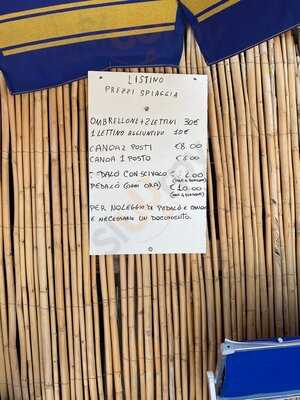 LISTINO
PREZZI SPIAGGIA
OMBRELLONE + 2 LETTINI 30€
1 LETTINO AGGIUNTIVO 10€
CANOA 2 POSTI €8.00
CANOA 1 POSTO €6.00
PEDALÒ CON SCIVOLO
PEDALÒ (OGNI ORA) €10.00
PER NOLEGGIO DI PEDALÒ E
E NECESSARIO UN DOCUMENTO.